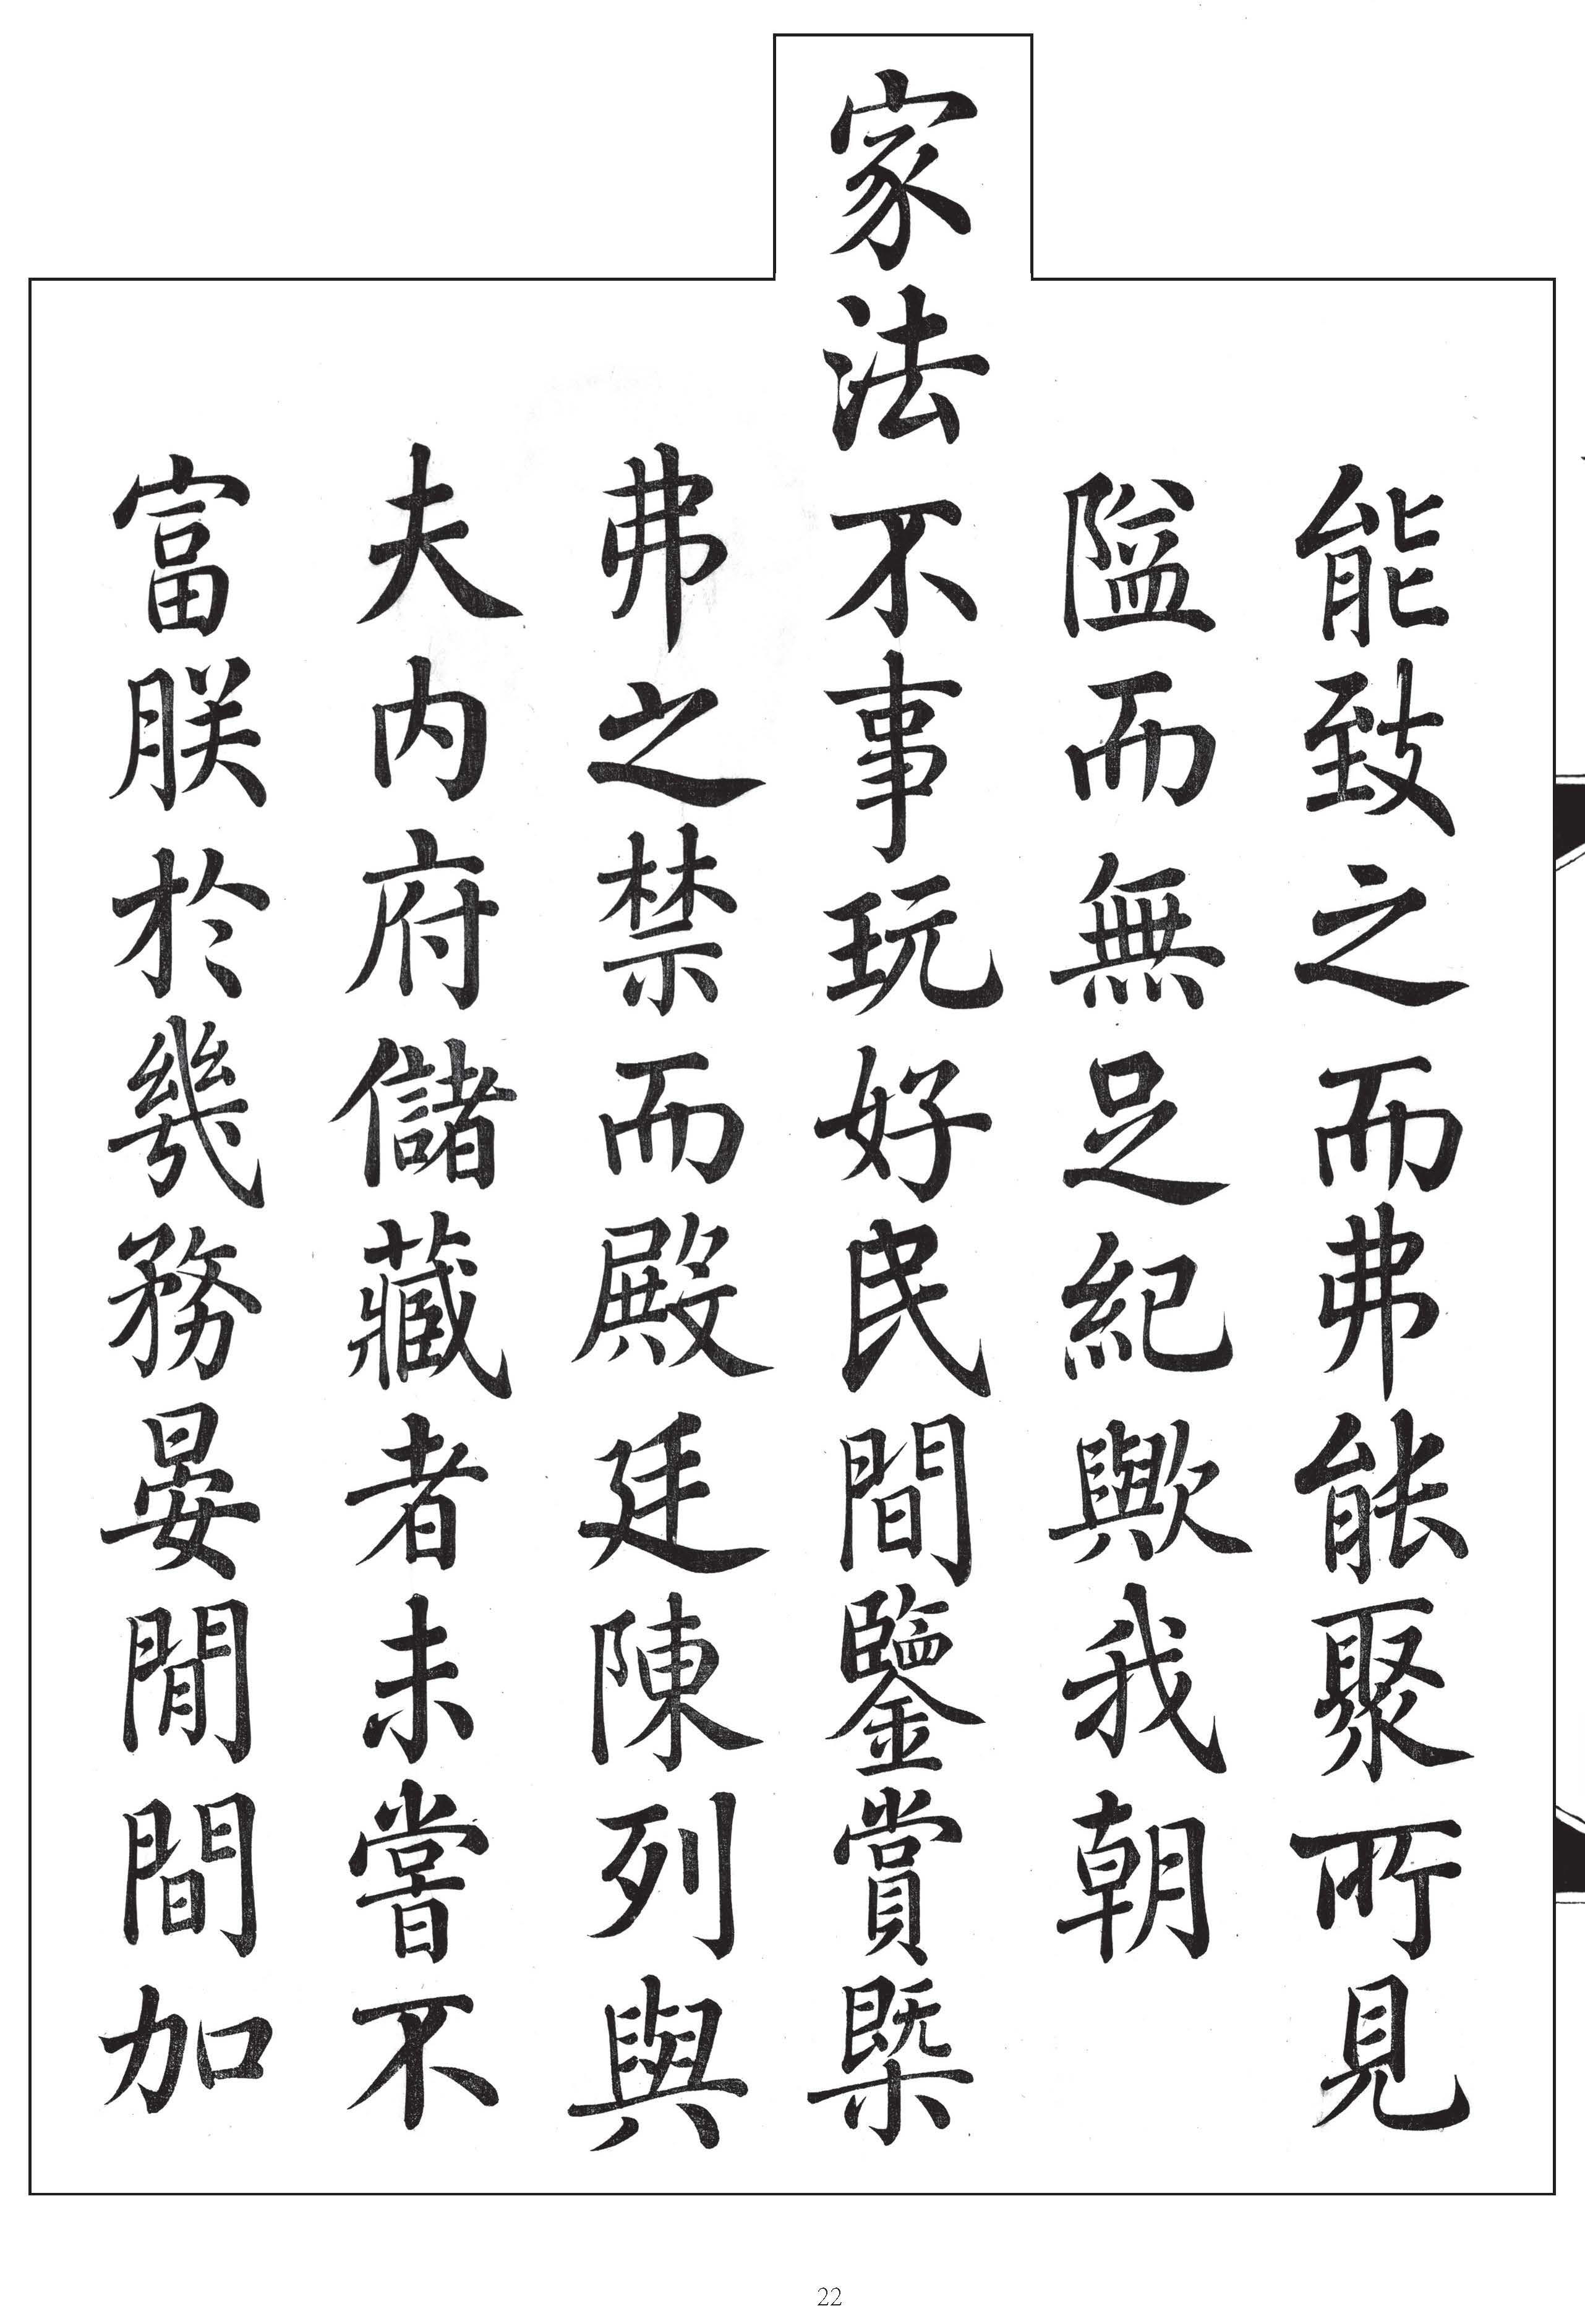 能致之而弗能聚所見
隘而無足紀歟我朝
家法不事玩好民間鑒賞槩
弗之禁而殿廷陳列與
夫內府儲藏者未嘗不
富朕於幾務晏閒間加
22